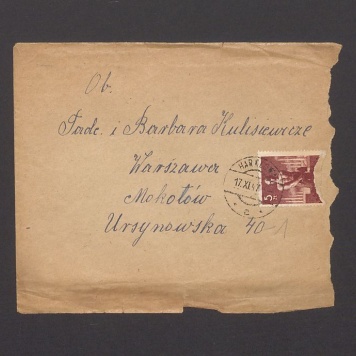 Ob.
Tadc. i Barbara Kulisiewicze
Warszawa
Mokotów
Ursynowska 40-1
17.XI.47
c
5